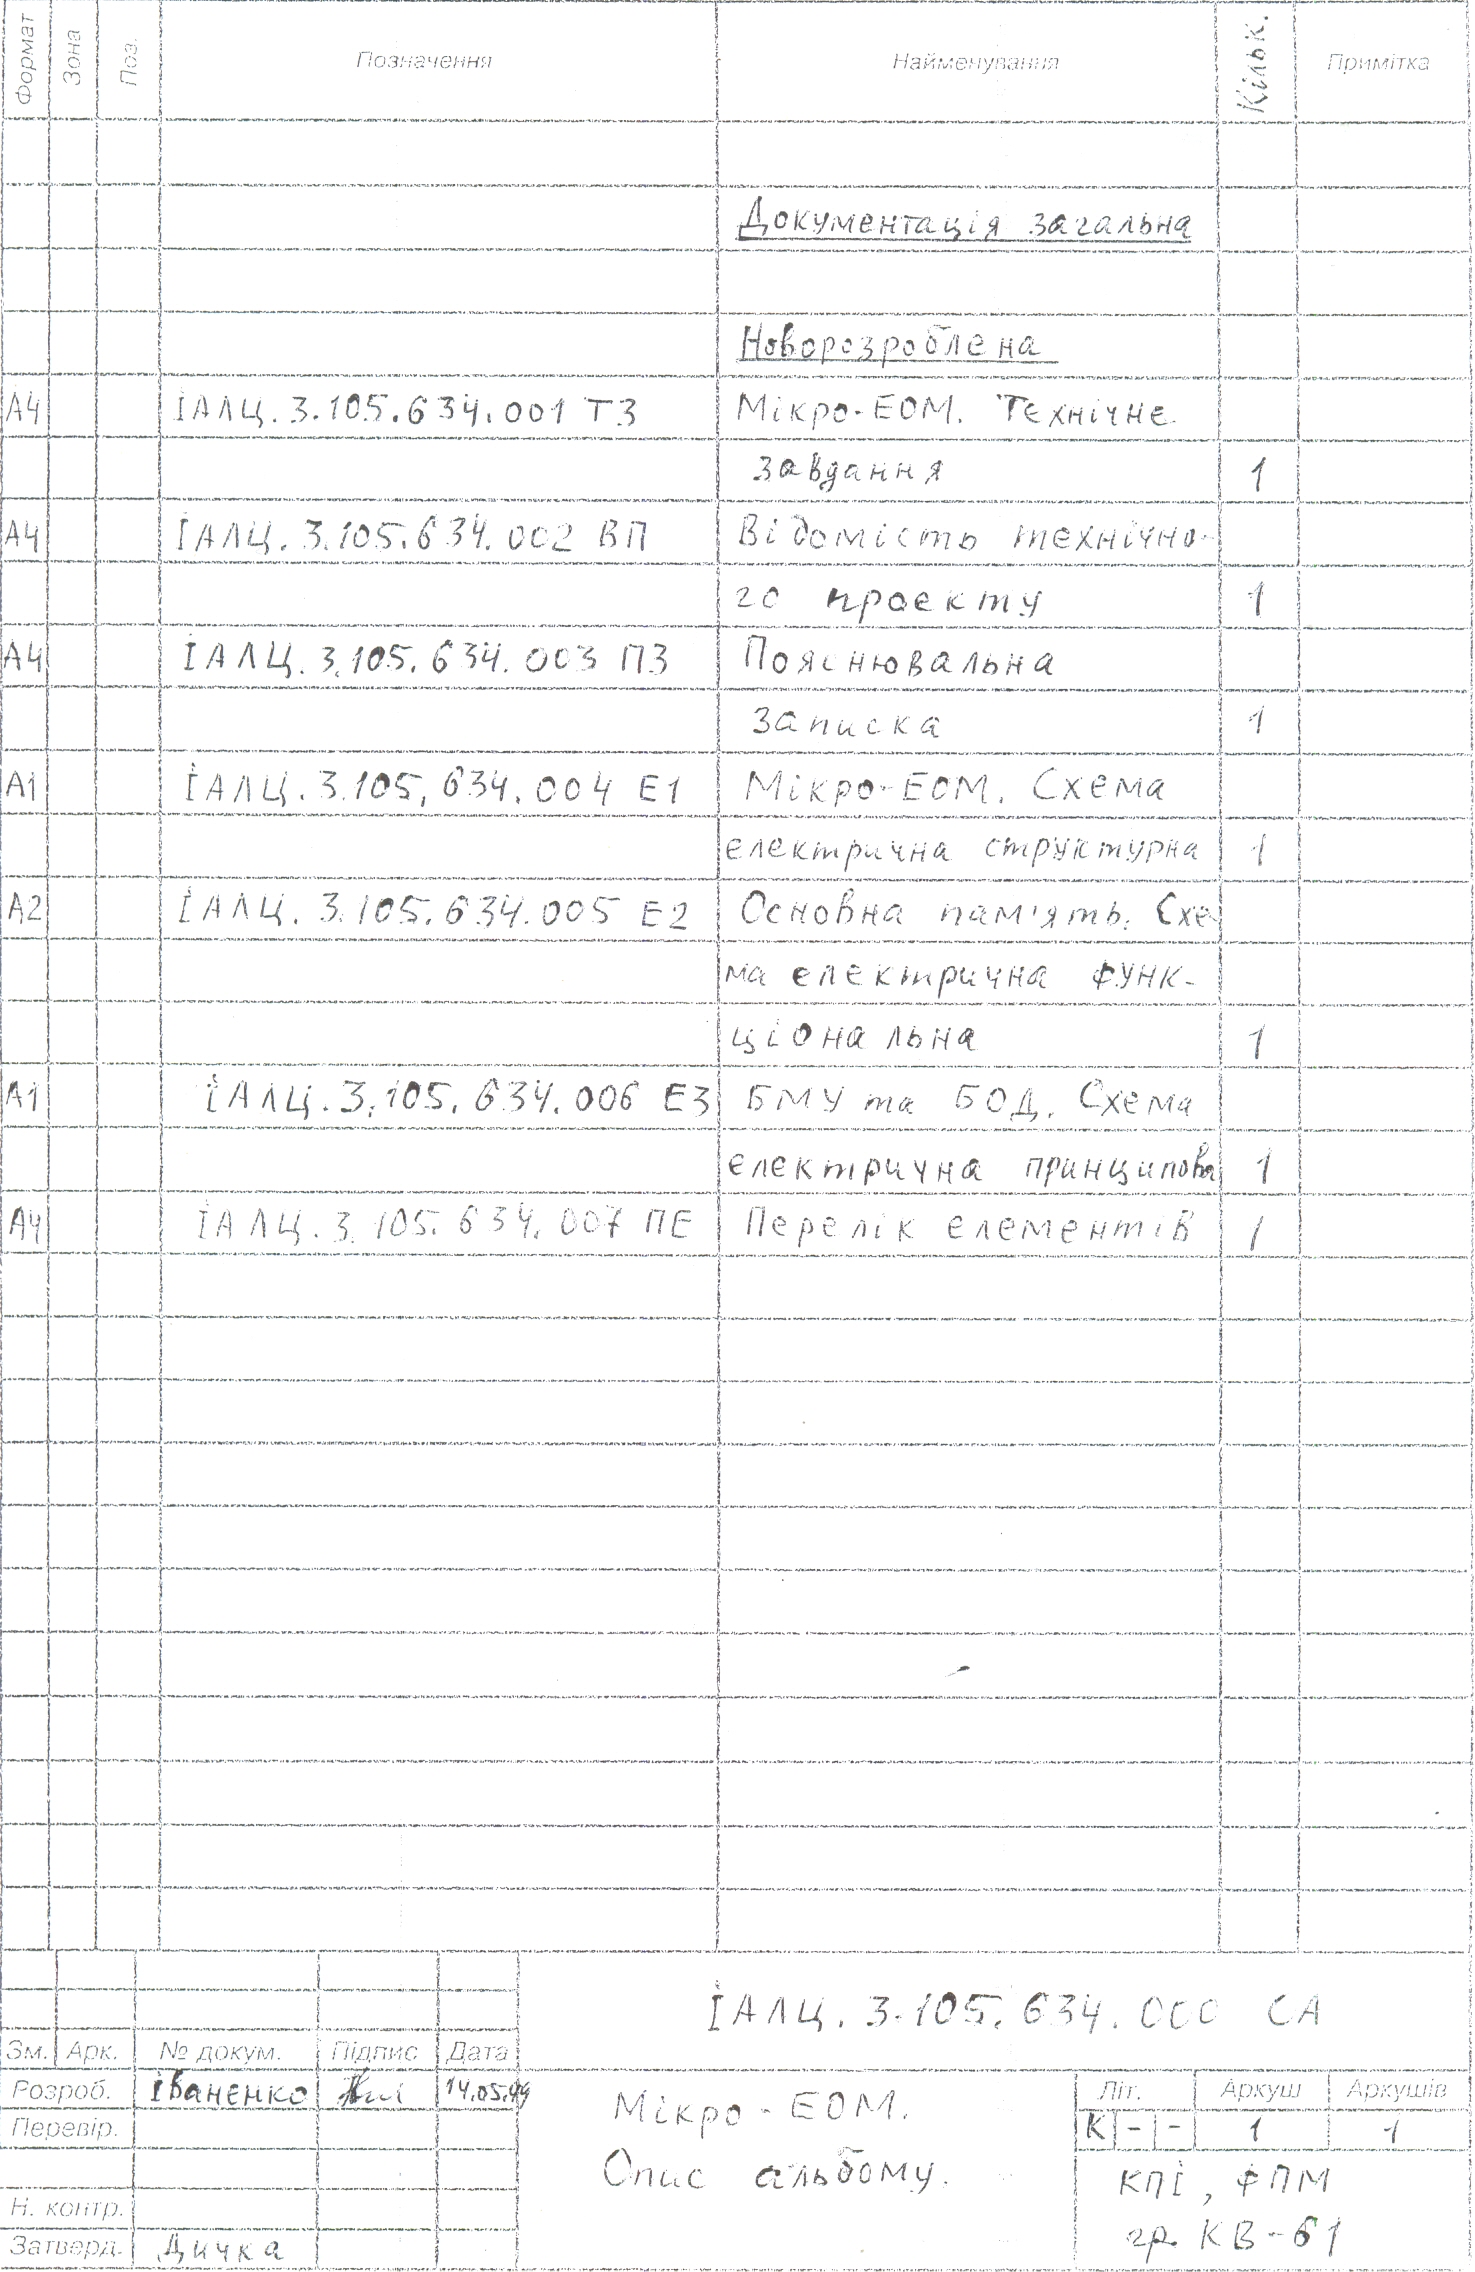 Формат Зона Поз. Позначення Найменування Кільк. Примітка
Документація загальна
Новорозроблена
А4 ІАЛЦ.3.105.634.001 ТЗ Мікро-ЕОМ. Технічне
завдання 1
А4 ІАЛЦ.3.105.634.002 ВП Відомість технічно-
го проекту 1
А4 ІАЛЦ.3.105.634.003 ПЗ Пояснювальна
записка 1
А1 ІАЛЦ.3.105.634.004 Е1 Мікро-ЕОМ. Схема
електрична структурна 1
А2 ІАЛЦ.3.105.634.005 Е2 Основна пам'ять. Схе-
ма електрична функ-
ціональна 1
А1 ІАЛЦ.3.105.634.006 Е3 БМУ та БОД. Схема
електрична принципова 1
А4 ІАЛЦ.3.105.634.007 ПЕ Перелік елементів 1
ІАЛЦ.3.105.634.000 СА
Зм. Арк. № докум. Підпис Дата
Розроб. Іваненко 14.05.99
Перевір.
Н. контр.
Затверд. Дичка
Мікро-ЕОМ.
Опис альбому.
Літ. Аркуш Аркушів
К - - 1 1
КПІ, ФПМ
гр. КВ-61